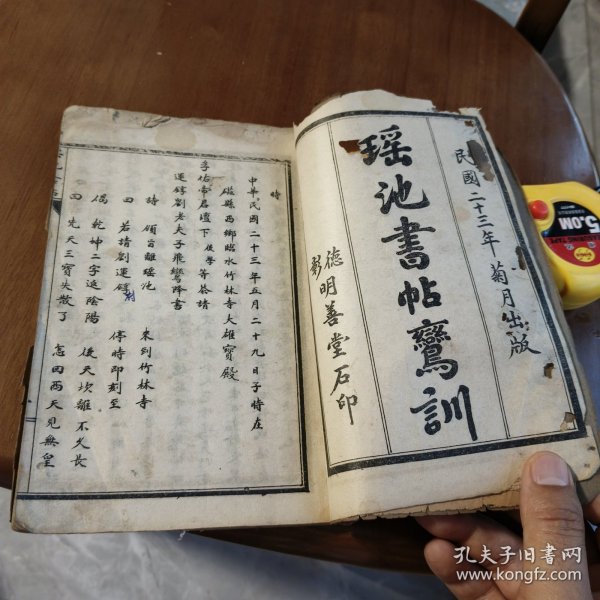 民國二十三年 菊月出版
瑶池書帖鸞訓
彰德明善堂石印
時
中華民國二十三年五月二十九日子時在
磁縣西鄉臨水竹林寺大雄寶殿
孚佑帝君壇下後學等恭請
運錞劉老夫子飛鸞降書
詩 領旨離瑶池 來到竹林寺
曰 若請劉運錞 停時即刻至
偈 乾坤二字返陰陽 後天坎離不久長
曰 先天三寶失散了 怎回西天見無皇
5.0M
孔夫子旧書网
www.kongfz.com